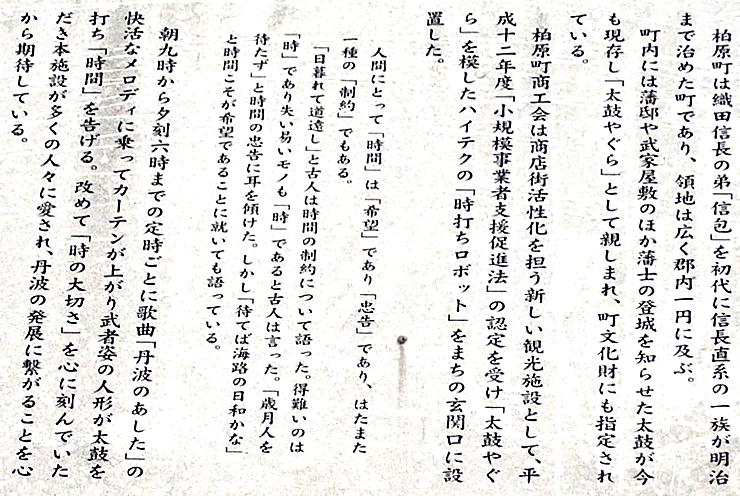 柏原町は織田信長の弟「信包」を初代に信長直系の一族が明治
まで治めた町であり、領地は広く郡内一円に及ぶ。
町内には藩邸や武家屋敷のほか藩士の登城を知らせた太鼓が今
も現存し「太鼓やぐら」として親しまれ、町文化財にも指定され
ている。
柏原町商工会は商店街活性化を担う新しい観光施設として、平
成十二年度「小規模事業者支援促進法」の認定を受け「太鼓やぐ
ら」を模したハイテクの「時打ちロボット」をまちの玄関口に設
置した。
人間にとって「時間」は「希望」であり「忠告」であり、はたまた
一種の「制約」でもある。
「日暮れて道遠し」と古人は時間の制約について語った。得難いのは
「時」であり失い易いモノも「時」であると古人は言った。「歳月人を
待たず」と時間の忠告に耳を傾けた。しかし「待てば海路の日和かな」
と時間こそが希望であることに就いても語っている。
朝九時から夕刻六時までの定時ごとに歌曲「丹波のあした」の
快活なメロディに乗ってカーテンが上がり武者姿の人形が太鼓を
打ち「時間」を告げる。改めて「時の大切さ」を心に刻んでいた
だき本施設が多くの人々に愛され、丹波の発展に繋がることを心
から期待している。